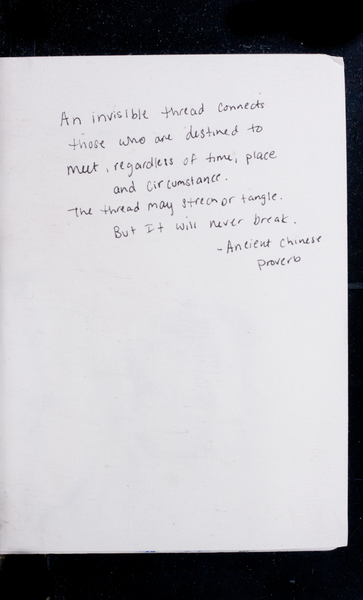 An invisible thread connects
those who are destined to
meet, regardless of time, place
and circumstance.
The thread may strech or tangle.
But It will never break.
- Ancient Chinese
proverb